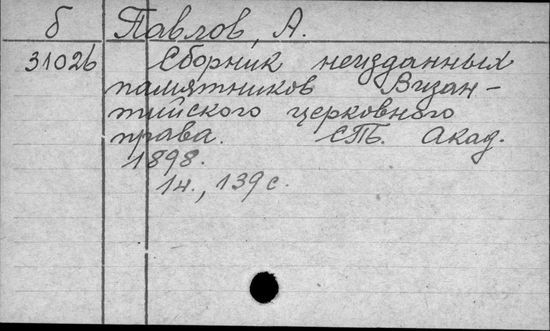 б Павлов, А.
31026 Сборник неизданных
памятников Визан-
тийского церковного
права. СПб. Акад.
1898.
1н., 139 с.